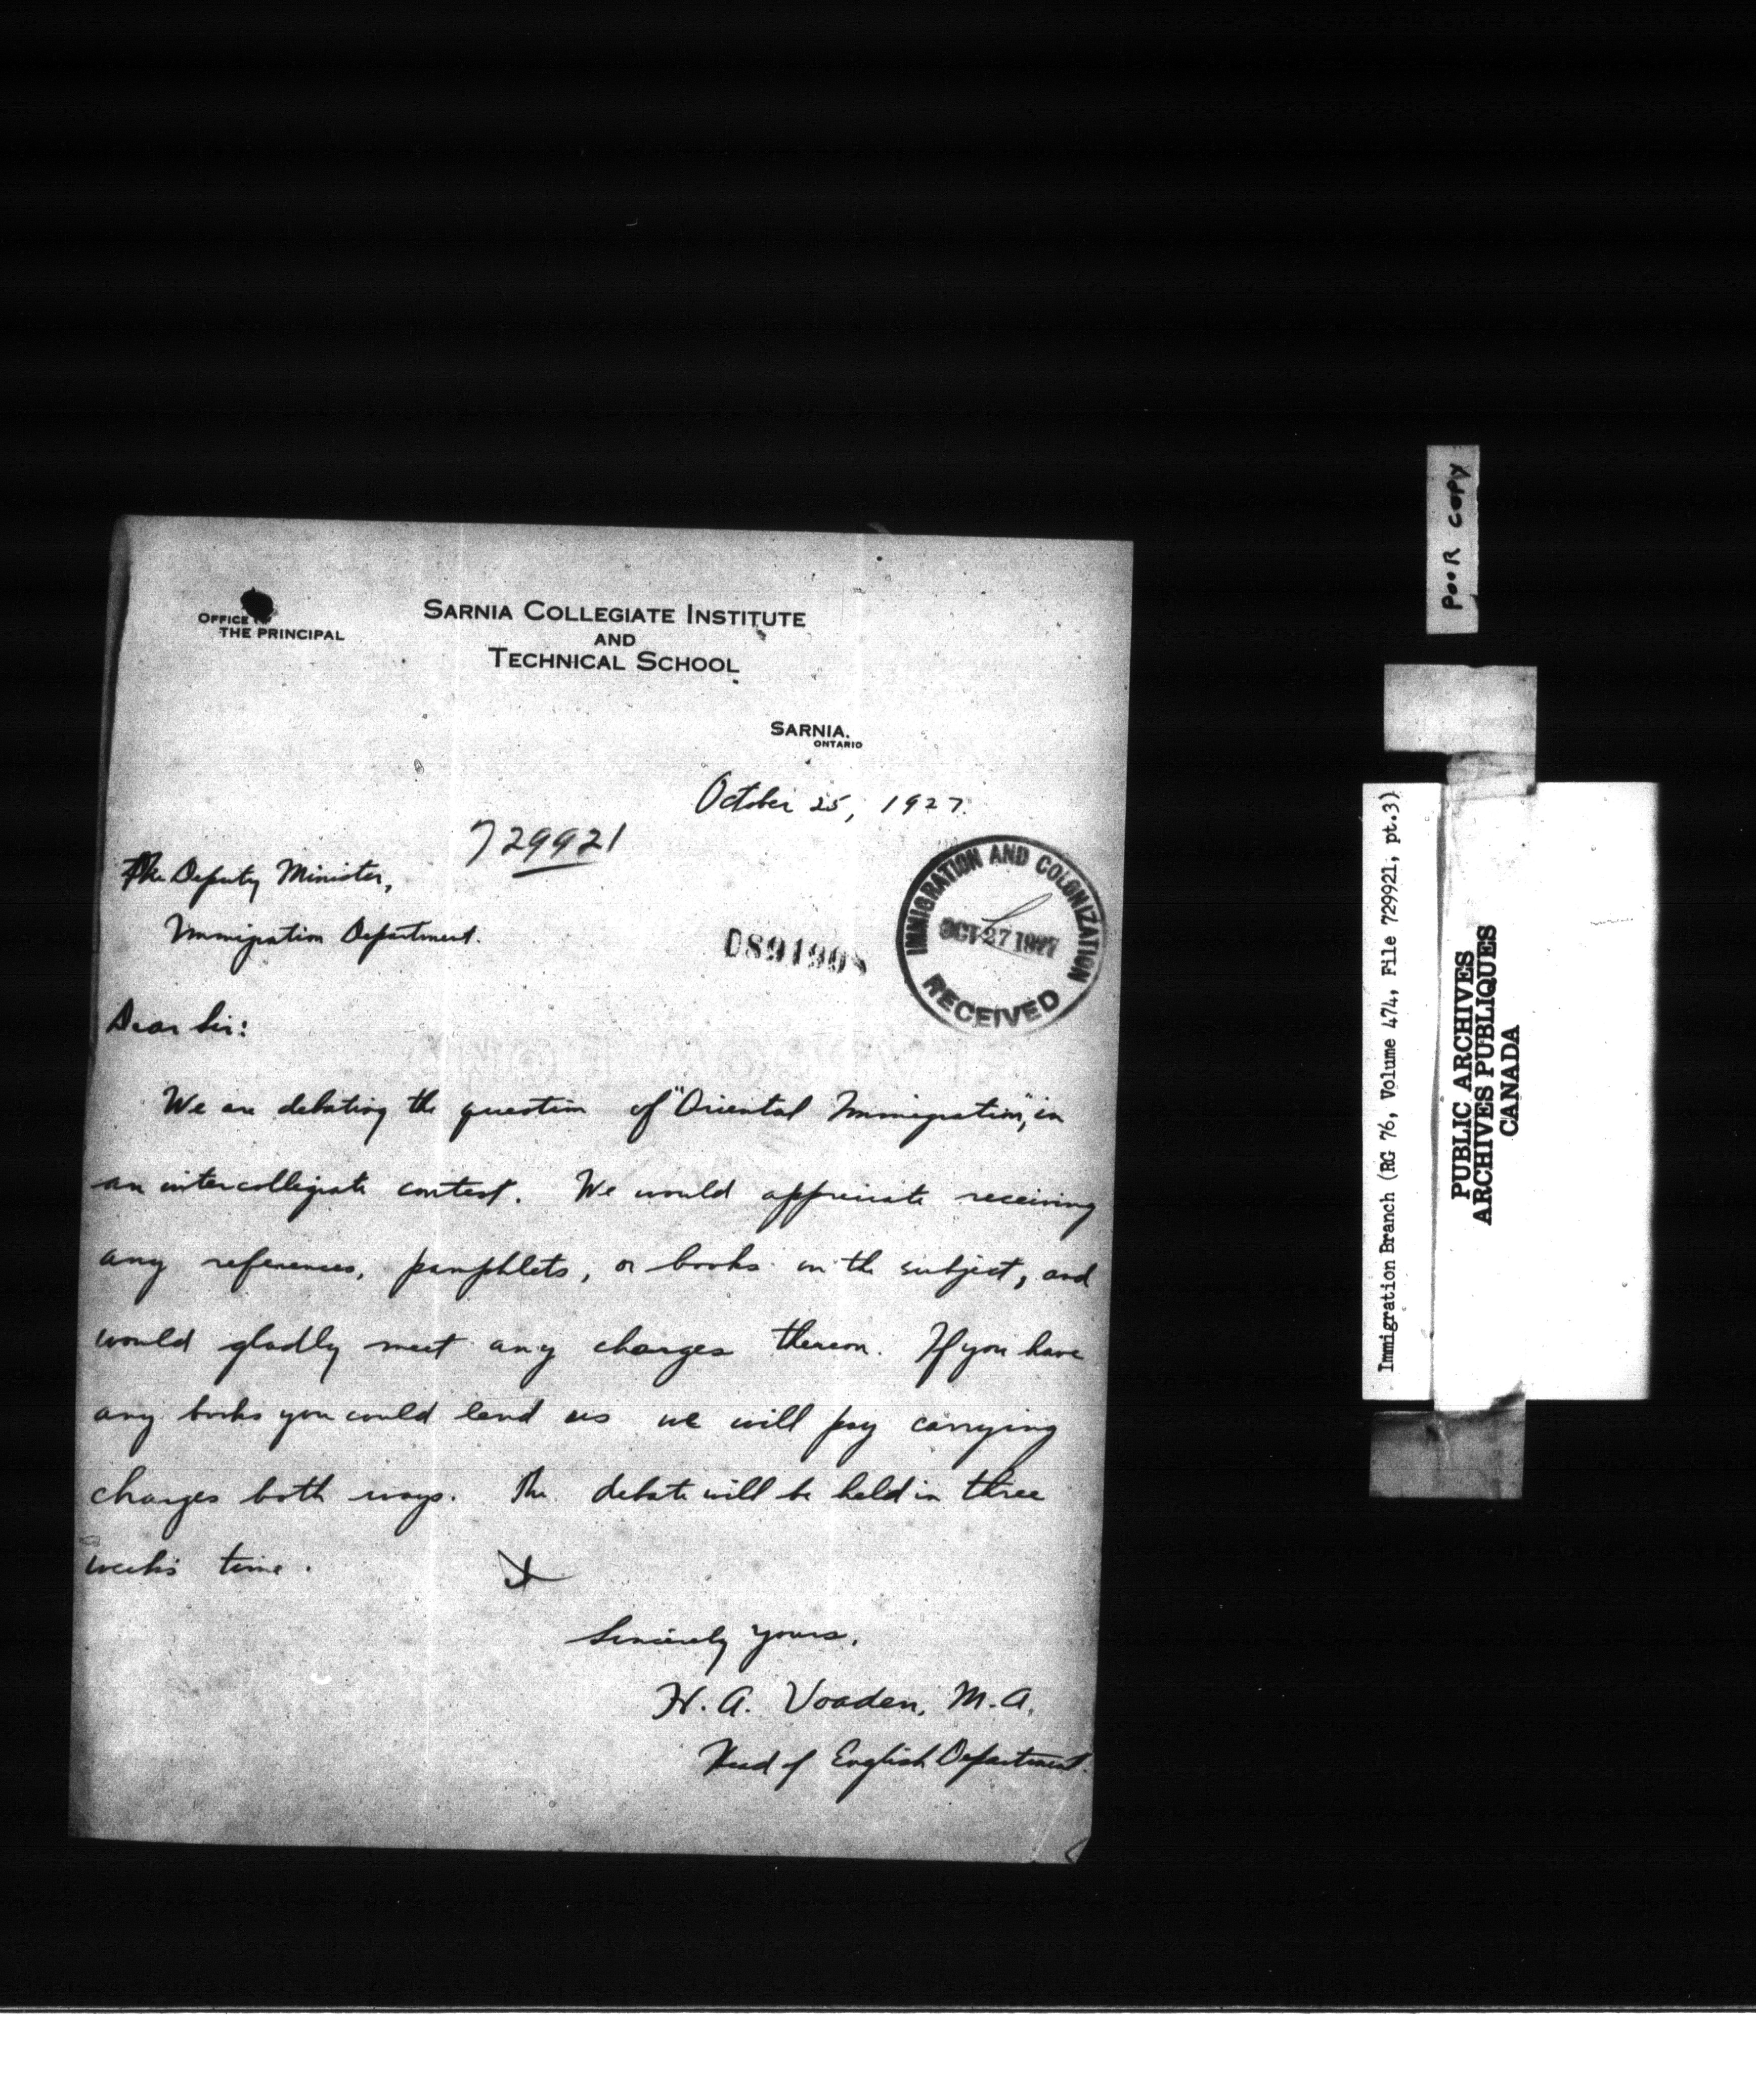 OFFICE OF
THE PRINCIPAL
SARNIA COLLEGIATE INSTITUTE
AND
TECHNICAL SCHOOL
SARNIA.
ONTARIO
October 25, 1927.
729921
The Deputy Minister,
Immigration Department.
D891908
IMMIGRATION AND COLONIZATION
OCT 27 1927
RECEIVED
Dear Sir:
We are debating the question of "Oriental Immigration", in
an intercollegiate contest. We would appreciate receiving
any references, pamphlets, or books on the subject, and
would gladly meet any charges thereon. If you have
any books you could lend us we will pay carrying
charges both ways. The debate will be held in three
weeks time.
Sincerely yours,
H. A. Voaden, M.A.
Head of English Department.
POOR COPY
Immigration Branch (RG 76, Volume 474, File 729921, pt.3)
PUBLIC ARCHIVES
ARCHIVES PUBLIQUES
CANADA